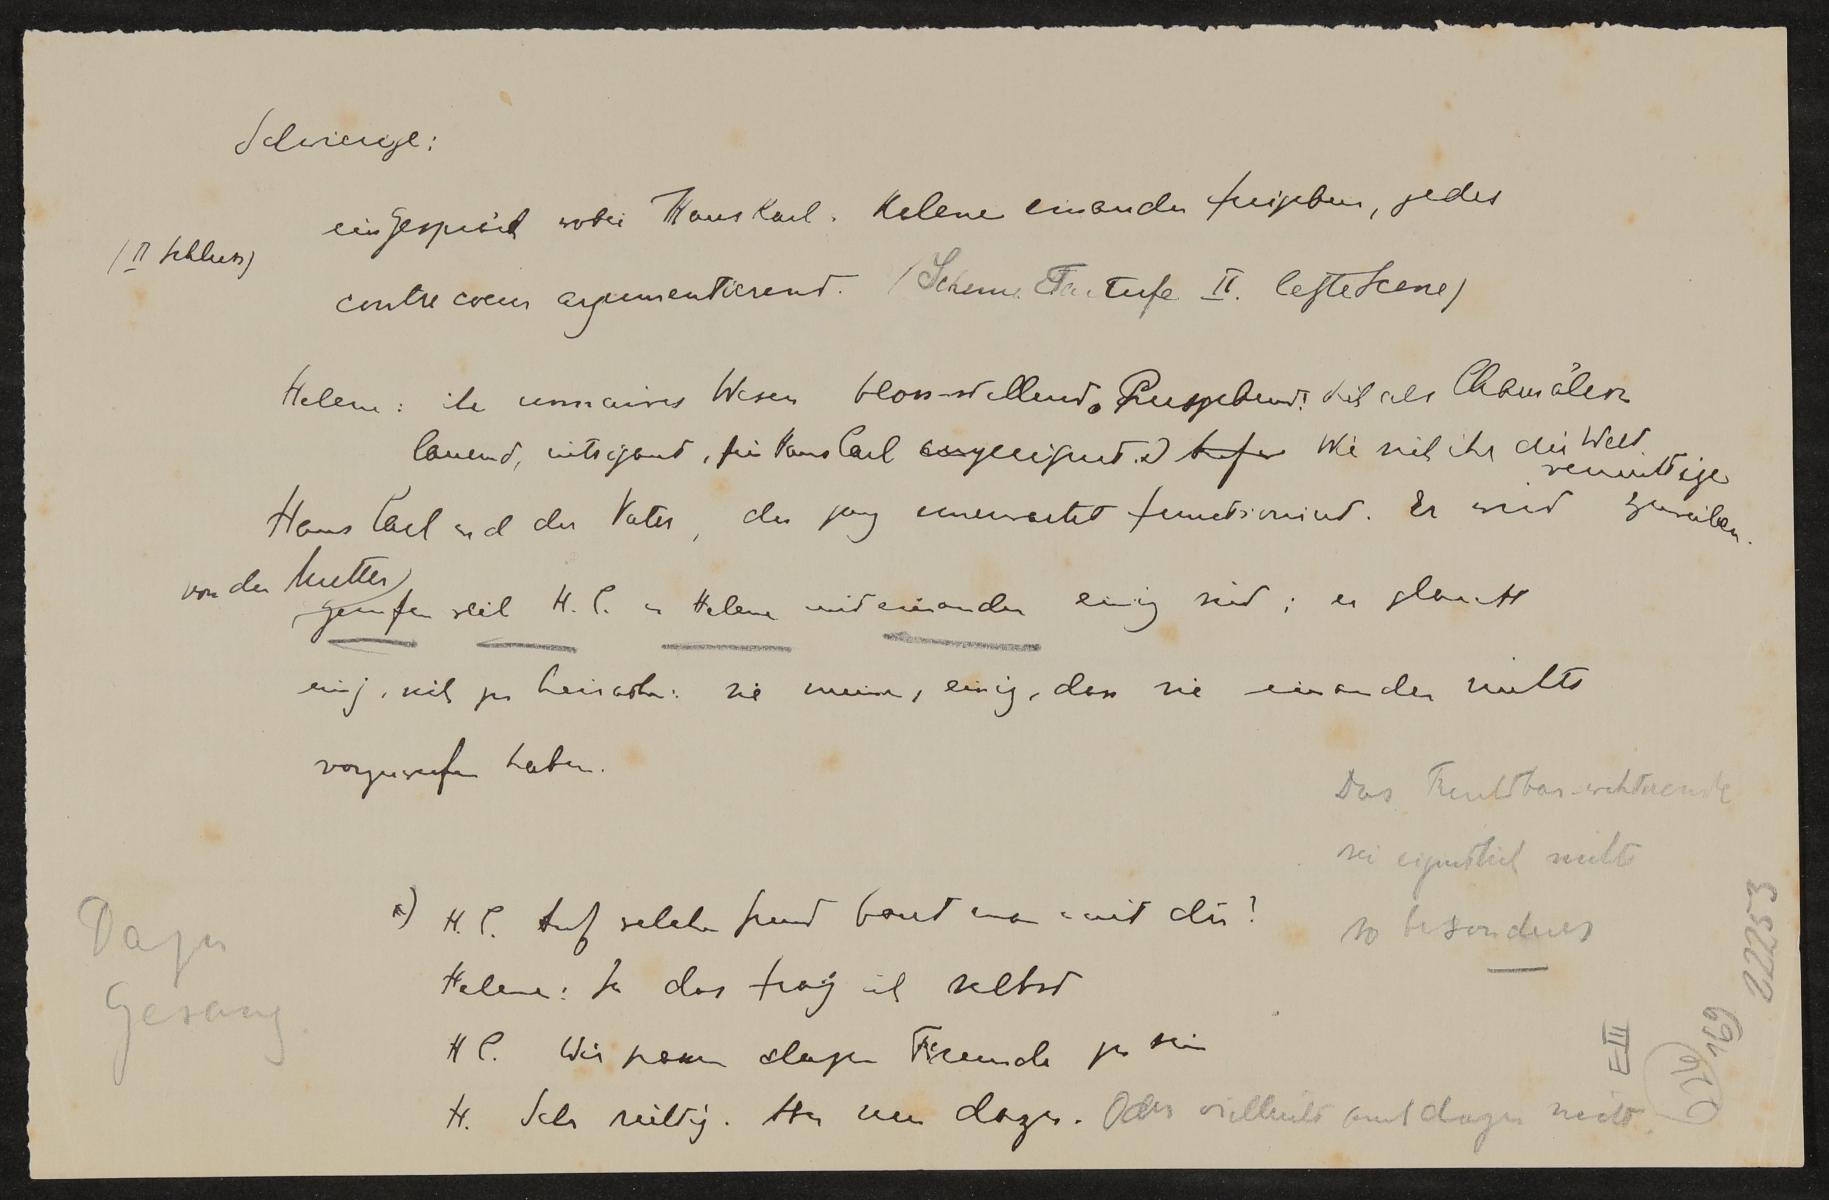 Schwierige:
ein Gespräch wobei Hans Karl u. Helene einander freigeben, jedes
(II Schluss)
contre coeur argumentierend. (Schema Tartufe II. letzte Scene)
Helene: ihr unnaives Wesen bloss-stellend, Preisgebend: sich als Chamäleon
lauernd, intrigant, für Hans Carl ungeeignet. Wie sieht ihr die Welt
Hans Carl und der Vater, der ganz unerwartet functioniert. Er wird
vernünftige
zureden.
von der Mutter
gerufen weil H. C. u Helene mit einander einig sind; er glaubt
einig, sich zu heirathen: sie meinen, einig, dass sie einander nichts
vorzuwerfen haben.
Das Furchtbar-
sei eigentlich nichts
so besonderes
Dazu
Gesang
a) H. C. Auf welchen Grund baut man mit dir?
Helene: Ja das frag ich selbst
H C. Wir passen dazu Freunde zu sein
H. Sehr richtig. Aber nur dazu. Oder vielleicht auch dazu nicht.
E III
22253